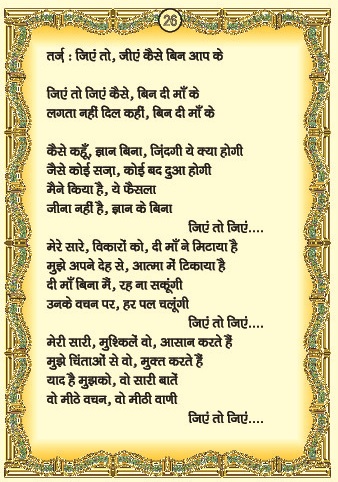 26
तर्ज़ : जिएं तो, जीएं कैसे बिन आप के
जिएं तो जिएं कैसे, बिन दी माँ के
लगता नहीं दिल कहीं, बिन दी माँ के
कैसे कहूँ, ज्ञान बिना, ज़िंदगी ये क्या होगी
जैसे कोई सज़ा, कोई बद दुआ होगी
मैने किया है, ये फैसला
जीना नहीं है, ज्ञान के बिना
जिएं तो जिएं....
मेरे सारे, विकारों को, दी माँ ने मिटाया है
मुझे अपने देह से, आत्मा में टिकाया है
दी माँ बिना मैं, रह ना सकूंगी
उनके वचन पर, हर पल चलूंगी
जिएं तो जिएं....
मेरी सारी, मुश्किलें वो, आसान करते हैं
मुझे चिंताओं से वो, मुक्त करते हैं
याद है मुझको, वो सारी बातें
वो मीठे वचन, वो मीठी वाणी
जिएं तो जिएं....